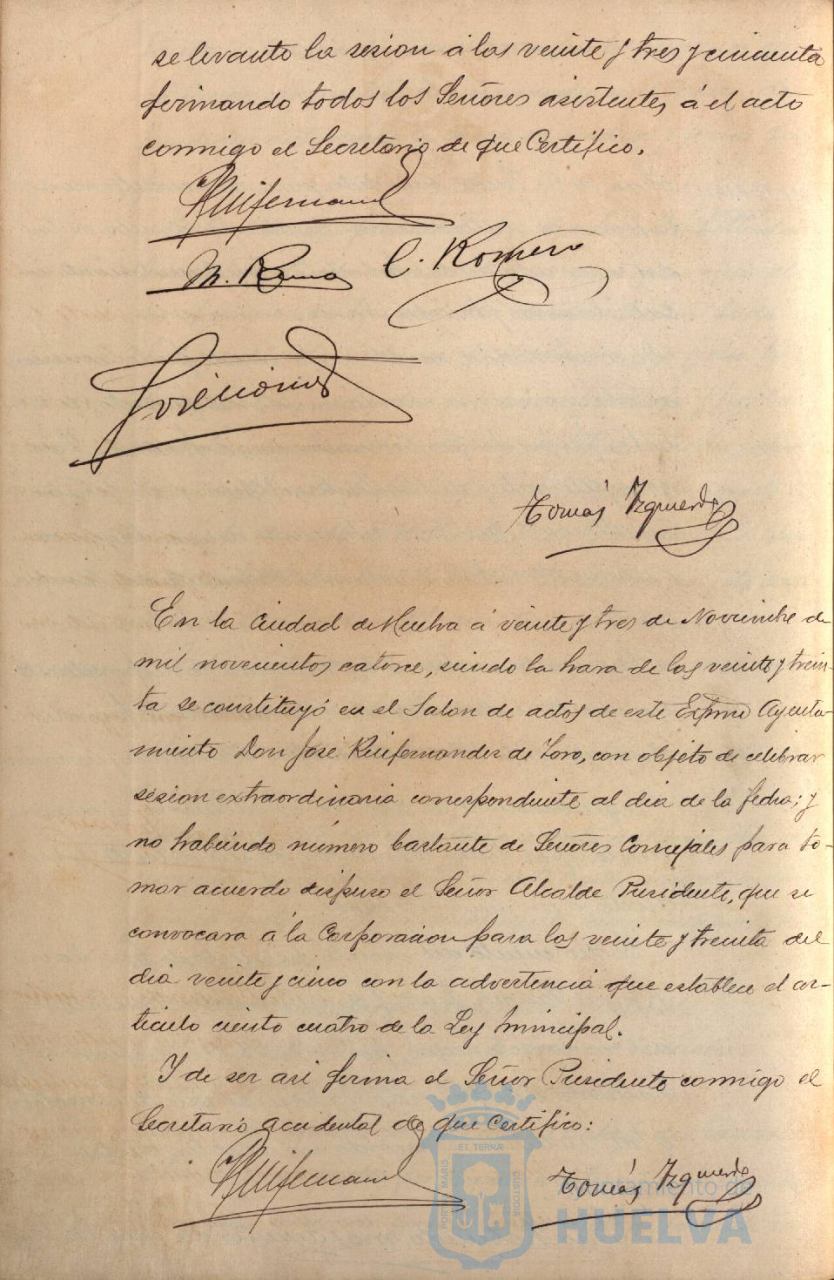 se levanto la sesion á las veinte y tres y cincuenta
firmando todos los Señores asistentes, á el acto
conmigo el Secretario de que Certifico.
C. Romero
Tomás Izquierdo
En la Ciudad de Huelva á veinte y tres de Noviembre de
mil novecientos catorce, siendo la hora de las veinte y trein-
ta se constituyó en el Salon de actos de este Exmo Ayunta-
miento Don José Ruifernandez de Toro, con objeto de celebrar
sesion extraordinaria correspondiente al dia de la fecha; y
no habiendo número bastante de Señores Concejales para to-
mar acuerdo dispuso el Señor Alcalde Presidente, que se
convocara á la Corporacion para las veinte y treinta del
dia veinte y cinco con la advertencia que establece el ar-
ticulo ciento cuatro de la Ley Municipal.
Y de ser asi firma el Señor Presidente conmigo el
Secretario accidental de que Certifico:
Tomás Izquierdo
Ayuntamiento de
HUELVA